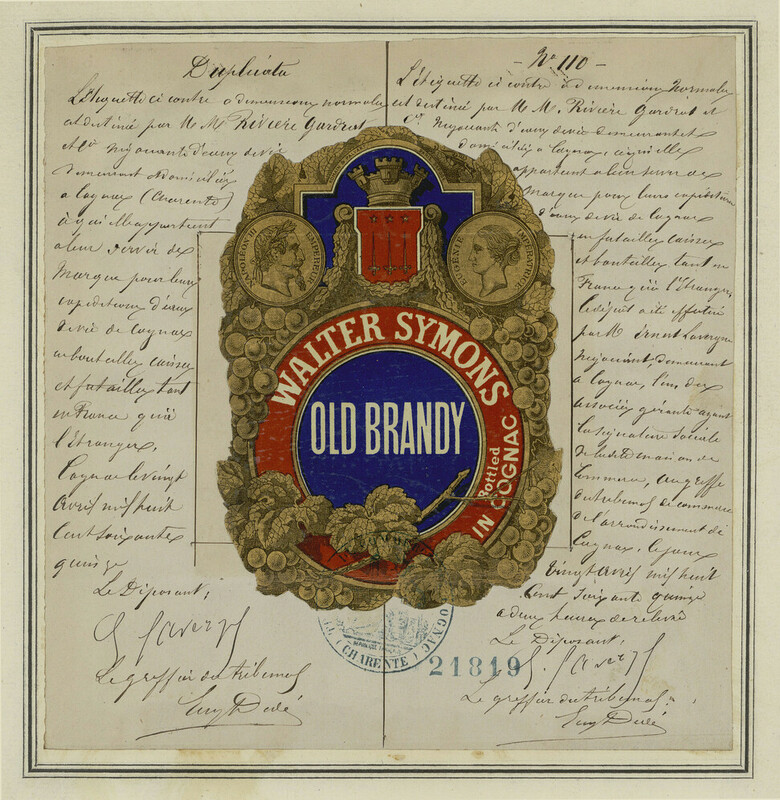 Duplicata
L'Etiquette ci contre a dimensions normales
est destinée par M.M. Rivière Gardrat
et Cie Négociants d'eaux de vie
demeurant et domiciliés
a Cognac (Charente)
à qui elle appartient
a leur servir de
Marque pour leurs
expéditions d'eaux
de vie de Cognac
en bouteilles caisses
et futailles tant
en France qu'à
l'étranger.
Cognac le vingt
Avril mil huit
Cent soixante
quinze
Le Déposant,
Le greffier du tribunal
- No 110 -
L'Etiquette ci contre a dimensions normales
est destinée par M.M. Rivière Gardrat et
Cie Négociants d'eaux de vie demeurant et
domiciliés a Cognac, à qui elle
appartient a leur servir de
Marque pour leurs expéditions
d'eaux de vie de Cognac
en futailles caisses
et bouteilles tant en
France qu'à l'étranger,
Le dépôt a été effectué
par M. Ernest
Négociant, demeurant
à Cognac, l'un des
associés gérants ayant
la signature sociale
de la dite maison de
Commerce, au greffe
du tribunal de commerce
de l'arrondissement de
Cognac, le jour
vingt Avril mil huit
Cent soixante quinze
a deux heures de relevé
Le Déposant,
Le greffier du tribunal
NAPOLEON III EMPEREUR
EUGENIE IMPERATRICE
WALTER SYMONS
OLD BRANDY
Bottled
IN COGNAC
COGNAC
(CHARENTE)
21819